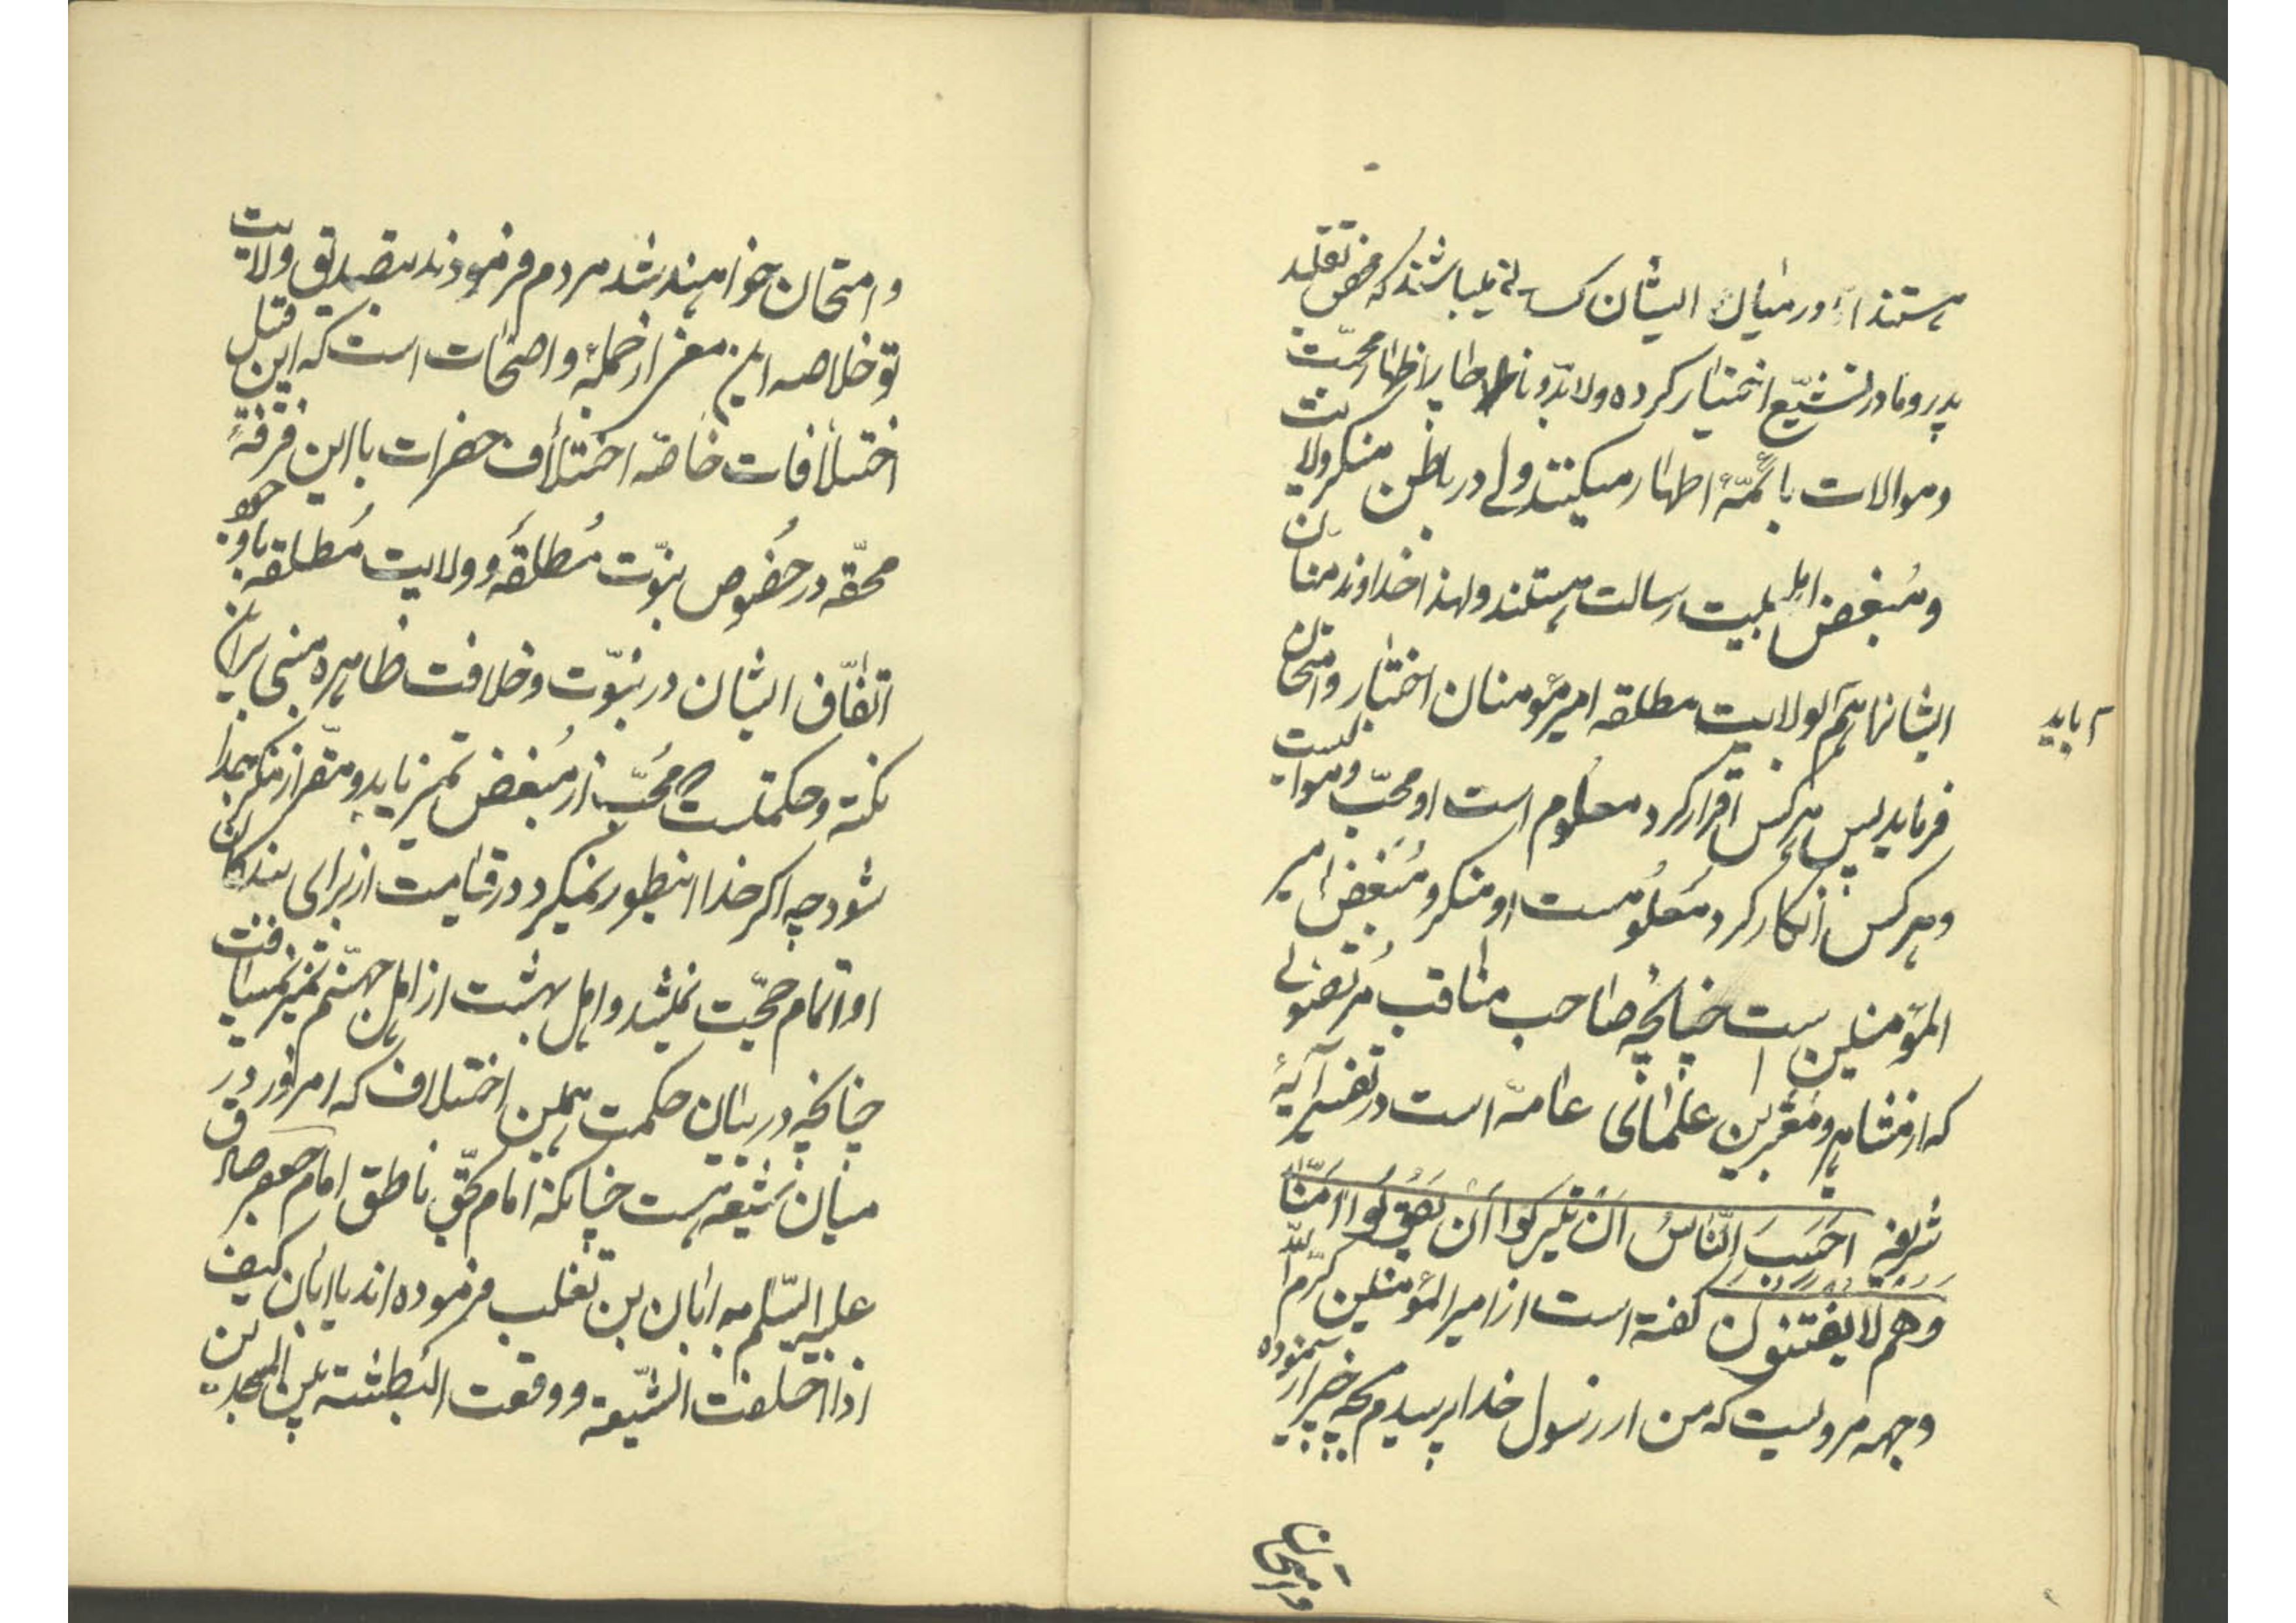 هستند اما در میان ایشان کسانی میباشند که محض تقلید
پدر و مادر تشیّع اختیار کرده ولابدّ و ناچار اظهار محبّت
و موالات با ائمّهٔ اطهار میکنند ولی در باطن منکر ولایت
و مُبغض اهل بیت رسالت هستند ولهذا خداوند منّان
ایشانرا هم بولایت مطلقه امیرمؤمنان اختبار و امتحان
باید
فرماید پس هرکس اقرار کرد معلوم است او محبّ و موالیست
و هرکس انکار کرد معلومست او منکر و مُبغض امیر
المؤمنین است چنانچه صاحب مناقب مرتضوی
که از مشاهیر و معتبرین علمای عامّه است در تفسیر آیهٔ
شریفه احَسِبَ النّاسُ اَنْ یُترکوا اَن یَقُولُوا آمَنّا
وهم لا یفتنون گفته است از امیرالمؤمنین کرّم الله
وجهه مرویست که من از رسول خدا پرسیدم بچه چیز آزموده
و امتحان
و امتحان خواهند شد مردم فرمودند بتصدیق ولایت
تو خلاصه این معنی از جملهٔ واضحات است که این قبیل
اختلافات خاصّه اختلاف حضرات با این فرقهٔ
محقّه در خصوص نبوّت مُطلقه و ولایت مُطلقه با وجود
اتّفاق ایشان در نبوّت و خلافت ظاهره مبنی بر آن
نکته و حکمتست که محبّ از مُبغض تمیز یابد و مقرّ از منکر جدا
شود چه اگر خدا اینطور نمیکرد در قیامت از برای بندگان
او اتمام حجّت نمیشد و اهل بهشت از اهل جهنّم تمیز نمییافت
چنانچه در بیان حکمت همین اختلاف که امروز در
میان شیعه هست چنانکه امام بحقّ ناطق امام جعفر صادق
علیه السّلم به ابان بن تغلب فرموده اند یا ابان کیف
اذا اختلفت الشّیعة و وقعت البطشة بین المسجدین